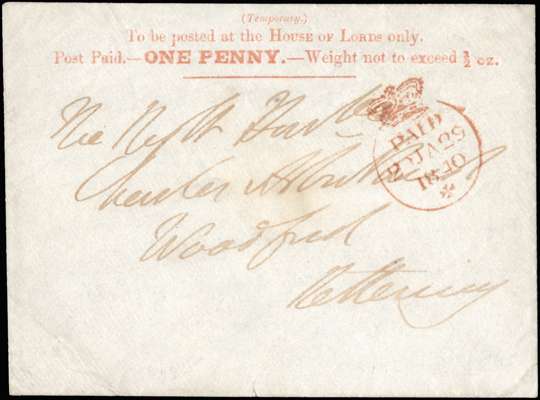 (Temporary.)
To be posted at the HOUSE OF LORDS only.
Post Paid.—ONE PENNY.—Weight not to exceed ½ oz.
PAID
JA 29
1840
The Rt Hon
Charles Arbuthnot
Woodford
Kettering